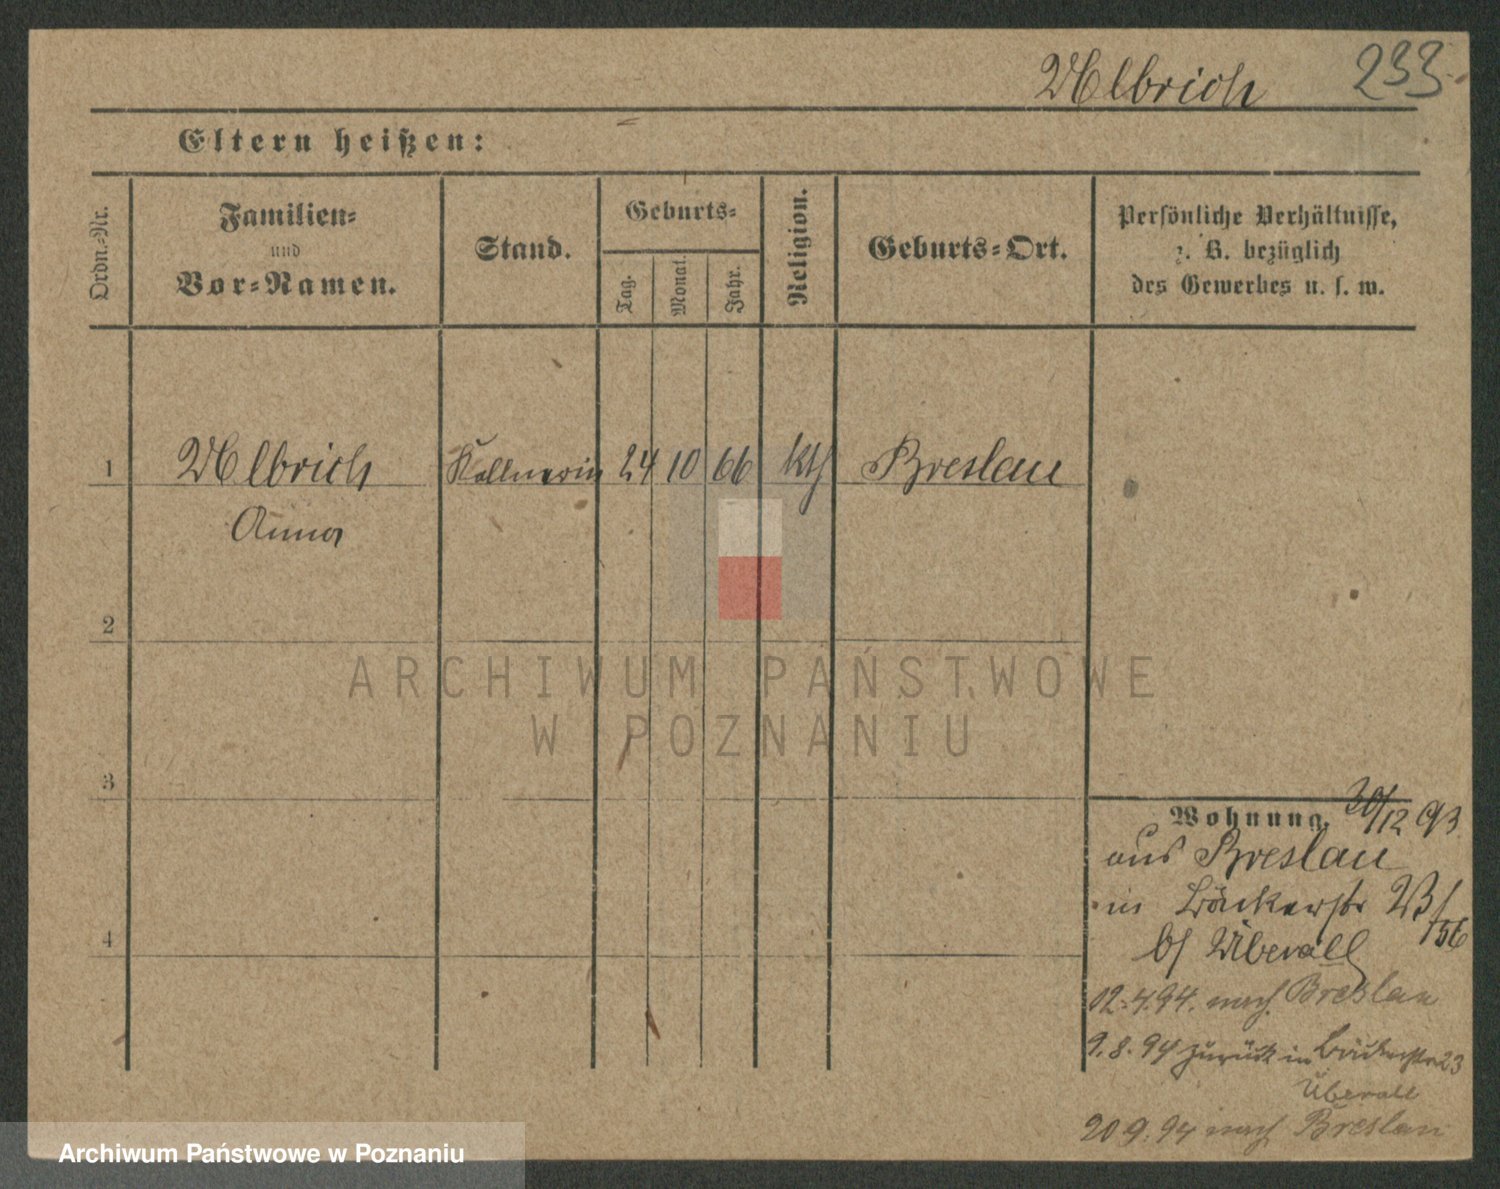 Ulbrich 233.
Eltern heißen:
Ordn.-Nr.
Familien-
und
Vor-Namen.
Stand.
Geburts-
Tag.
Monat.
Jahr.
Religion.
Geburts-Ort.
Persönliche Verhältnisse,
z. B. bezüglich
des Gewerbes u. s. w.
1 Ulbrich Kellnerin 24 10 66 kth Breslau
Anna
2
ARCHIWUM PAŃSTWOWE
W POZNANIU
3
Wohnung. 30/12 93
aus Breslau
in Bäckerstr 23/
156
b/ Überall
02.4.94. nach Breslau
9.8.94 zurück in Bäckerstr 23
Überall
4
20 9. 94 nach Breslau
Archiwum Państwowe w Poznaniu